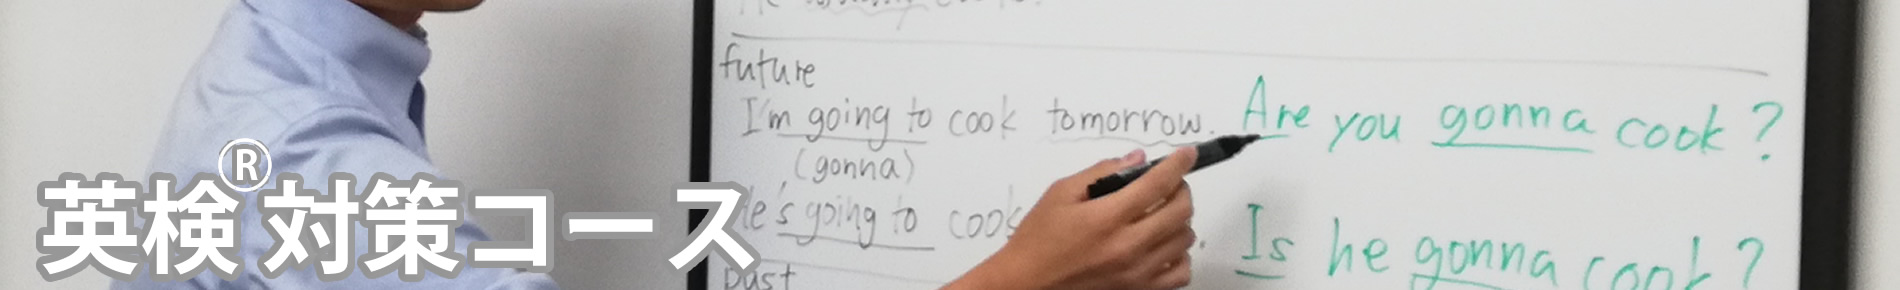 future
I'm going to cook tomorrow. Are you gonna cook?
(gonna)
He's going to cook Is he gonna cook?
past
英検®対策コース